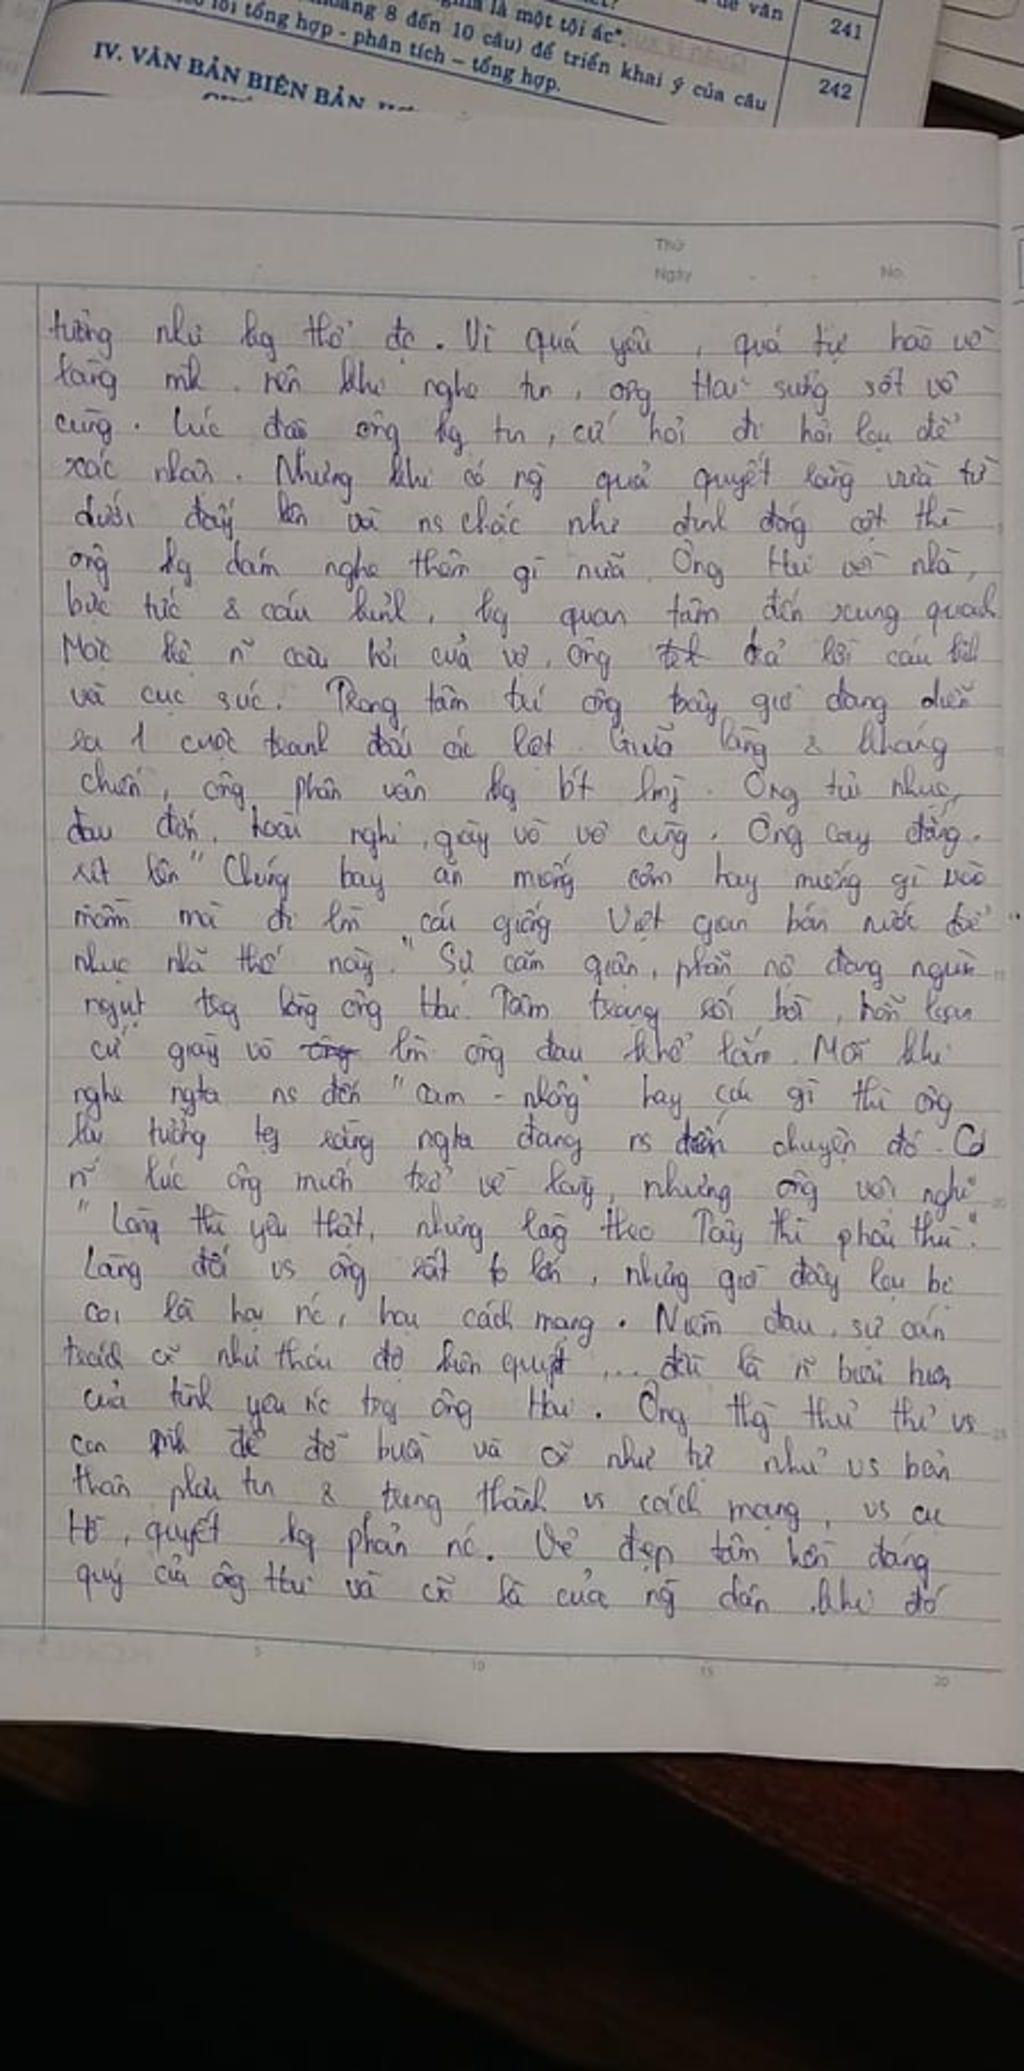 là một tội ác".
8 đến 10 câu) để triển khai ý của câu
tổng hợp - phân tích – tổng hợp.
văn
241
242
IV. VĂN BẢN BIÊN BẢN,
Thứ
Ngày No.
tưởng như kg thở đc. Vì quá yêu, quá tự hào về
làng mh nên khi nghe tin, ông Hai sững sốt vô
cùng. Lúc đầu ông kg tin, cứ hỏi đi hỏi lại để
xác nhận. Nhưng khi có ng quả quyết rằng vừa từ
dưới đấy lên và ns chắc như đinh đóng cột thì
ông kg dám nghe thêm gì nữa. Ông Hai về nhà,
bực tức & cáu kỉnh, kg quan tâm đến xung quanh
Mặc kệ n~ câu hỏi của vợ, ông trả lời cáu kỉnh
và cục súc. Trong tâm trí ông bây giờ đang diễn
ra 1 cuộc tranh đấu ác liệt. Giữa làng & kháng
chiến, ông phân vân kg bít lmj. Ông tủi nhục,
đau đớn, hoài nghi, giày vò vô cùng. Ông cay đắng
rít lên "Chúng bay ăn miếng cơm hay miếng gì vào
mồm mà đi lm cái giống Việt gian bán nước để
nhục nhã thế này." Sự căm giận, phẫn nộ đang ngùn
ngụt trg lòng ông Hai. Tâm trạng rối bời, hỗn loạn
cứ giày vò lm ông đau khổ lắm. Mỗi khi
nghe ngta ns đến "cam - nhông" hay cái gì thì ông
lại tưởng tg rằng ngta đang ns đến chuyện đó. Có
n~ lúc ông muốn trở về làng, nhưng ông vội nghĩ
"Làng thì yêu thật, nhưng làng theo Tây thì phải thù".
Làng đối vs ông rất to lớn, nhưng giờ đây lại bị
coi là hại nc, hại cách mạng. Niềm đau, sự oán
trách cx như thái độ kiên quyết ... đều là n~ biểu hiện
của tình yêu nc trg ông Hai. Ông thg thủ thỉ vs
con mh để đỡ buồn và cx như tự nhủ vs bản
thân phải tin & trung thành vs cách mạng, vs cụ
Hồ, quyết kg phản nc. Vẻ đẹp tâm hồn đáng
quý của ông Hai và cx là của ng dân khi đó
5 10 15 20